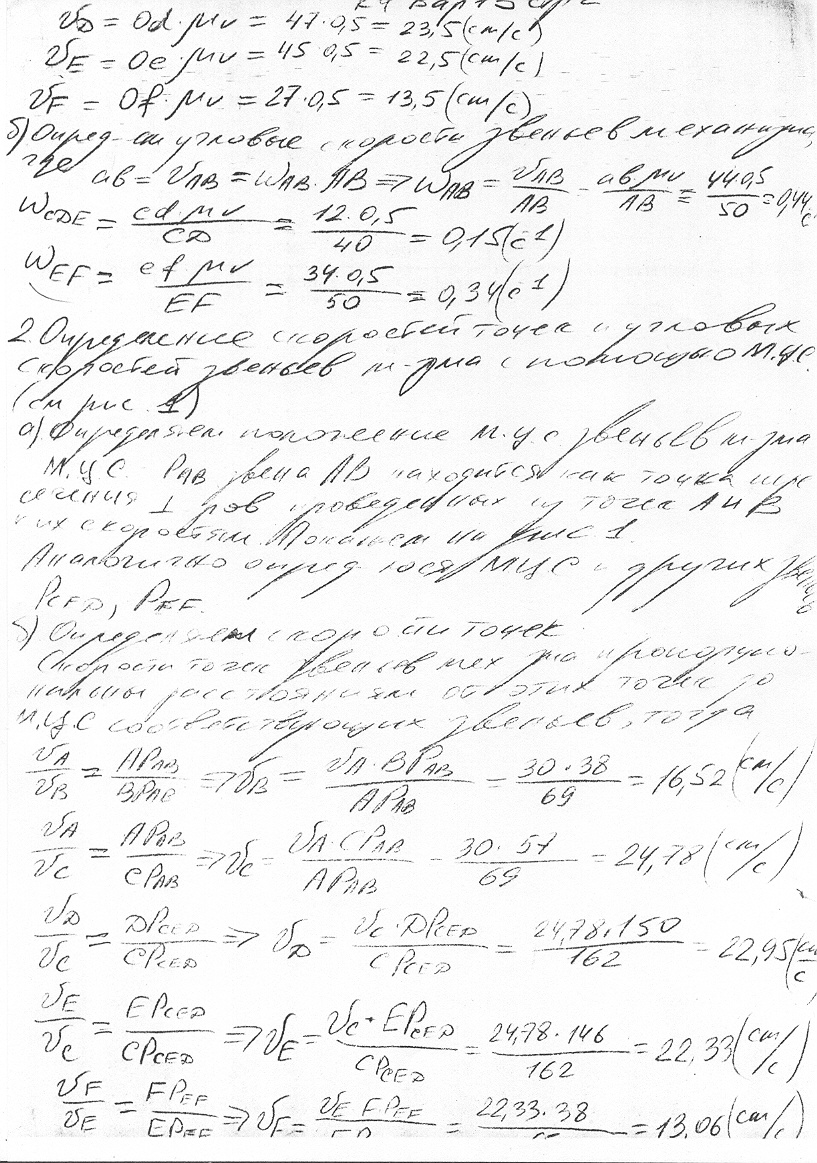 К4 вар
v_D = Od · μv = 47 · 0,5 = 23,5 (см/с)
v_E = Oe · μv = 45 · 0,5 = 22,5 (см/с)
v_F = Of · μv = 27 · 0,5 = 13,5 (см/с)
б) Опред-ем угловые скорости звеньев механизма,
где ав = v_AB = ω_AB · AB => ω_AB = v_AB/AB = ав·μv/AB = 44·0,5/50 = 0,44 с
ω_CDE = cd·μv/CD = 12·0,5/40 = 0,15 (с-1)
ω_EF = ef·μv/EF = 34·0,5/50 = 0,34 (с-1)
2. Определение скоростей точек и угловых
скоростей звеньев м-зма с помощью М.Ц.С.
(см рис. 1)
а) Определяем положение м.ц.с. звеньев м-зма
М.Ц.С. P_AB звена AB находится как точка пере
сечения ⊥ ров проведенных из точек A и B
к их скоростям. Покажем на рис 1.
Аналогично опред-юся МЦС и других звеньев
P_CED, P_EF.
б) Определяем скорости точек
Скорости точек звеньев мех-зма пропорцио-
нальны расстояниям от этих точек до
М.Ц.С соответствующих звеньев, тогда
v_A/v_B = AP_AB/BP_AB => v_B = v_A·BP_AB/AP_AB = 30·38/69 = 16,52 (см/с)
v_A/v_C = AP_AB/CP_AB => v_C = v_A·CP_AB/AP_AB = 30·57/69 = 24,78 (см/с)
v_D/v_C = DP_CED/CP_CED => v_D = v_C·DP_CED/CP_CED = 24,78·150/162 = 22,95 (см/с
v_E/v_C = EP_CED/CP_CED => v_E = v_C·EP_CED/CP_CED = 24,78·146/162 = 22,33 (см/с)
v_F/v_E = FP_EF/EP_EF => v_F = v_E·FP_EF/ = 22,33·38/ = 13,06 (см/с)